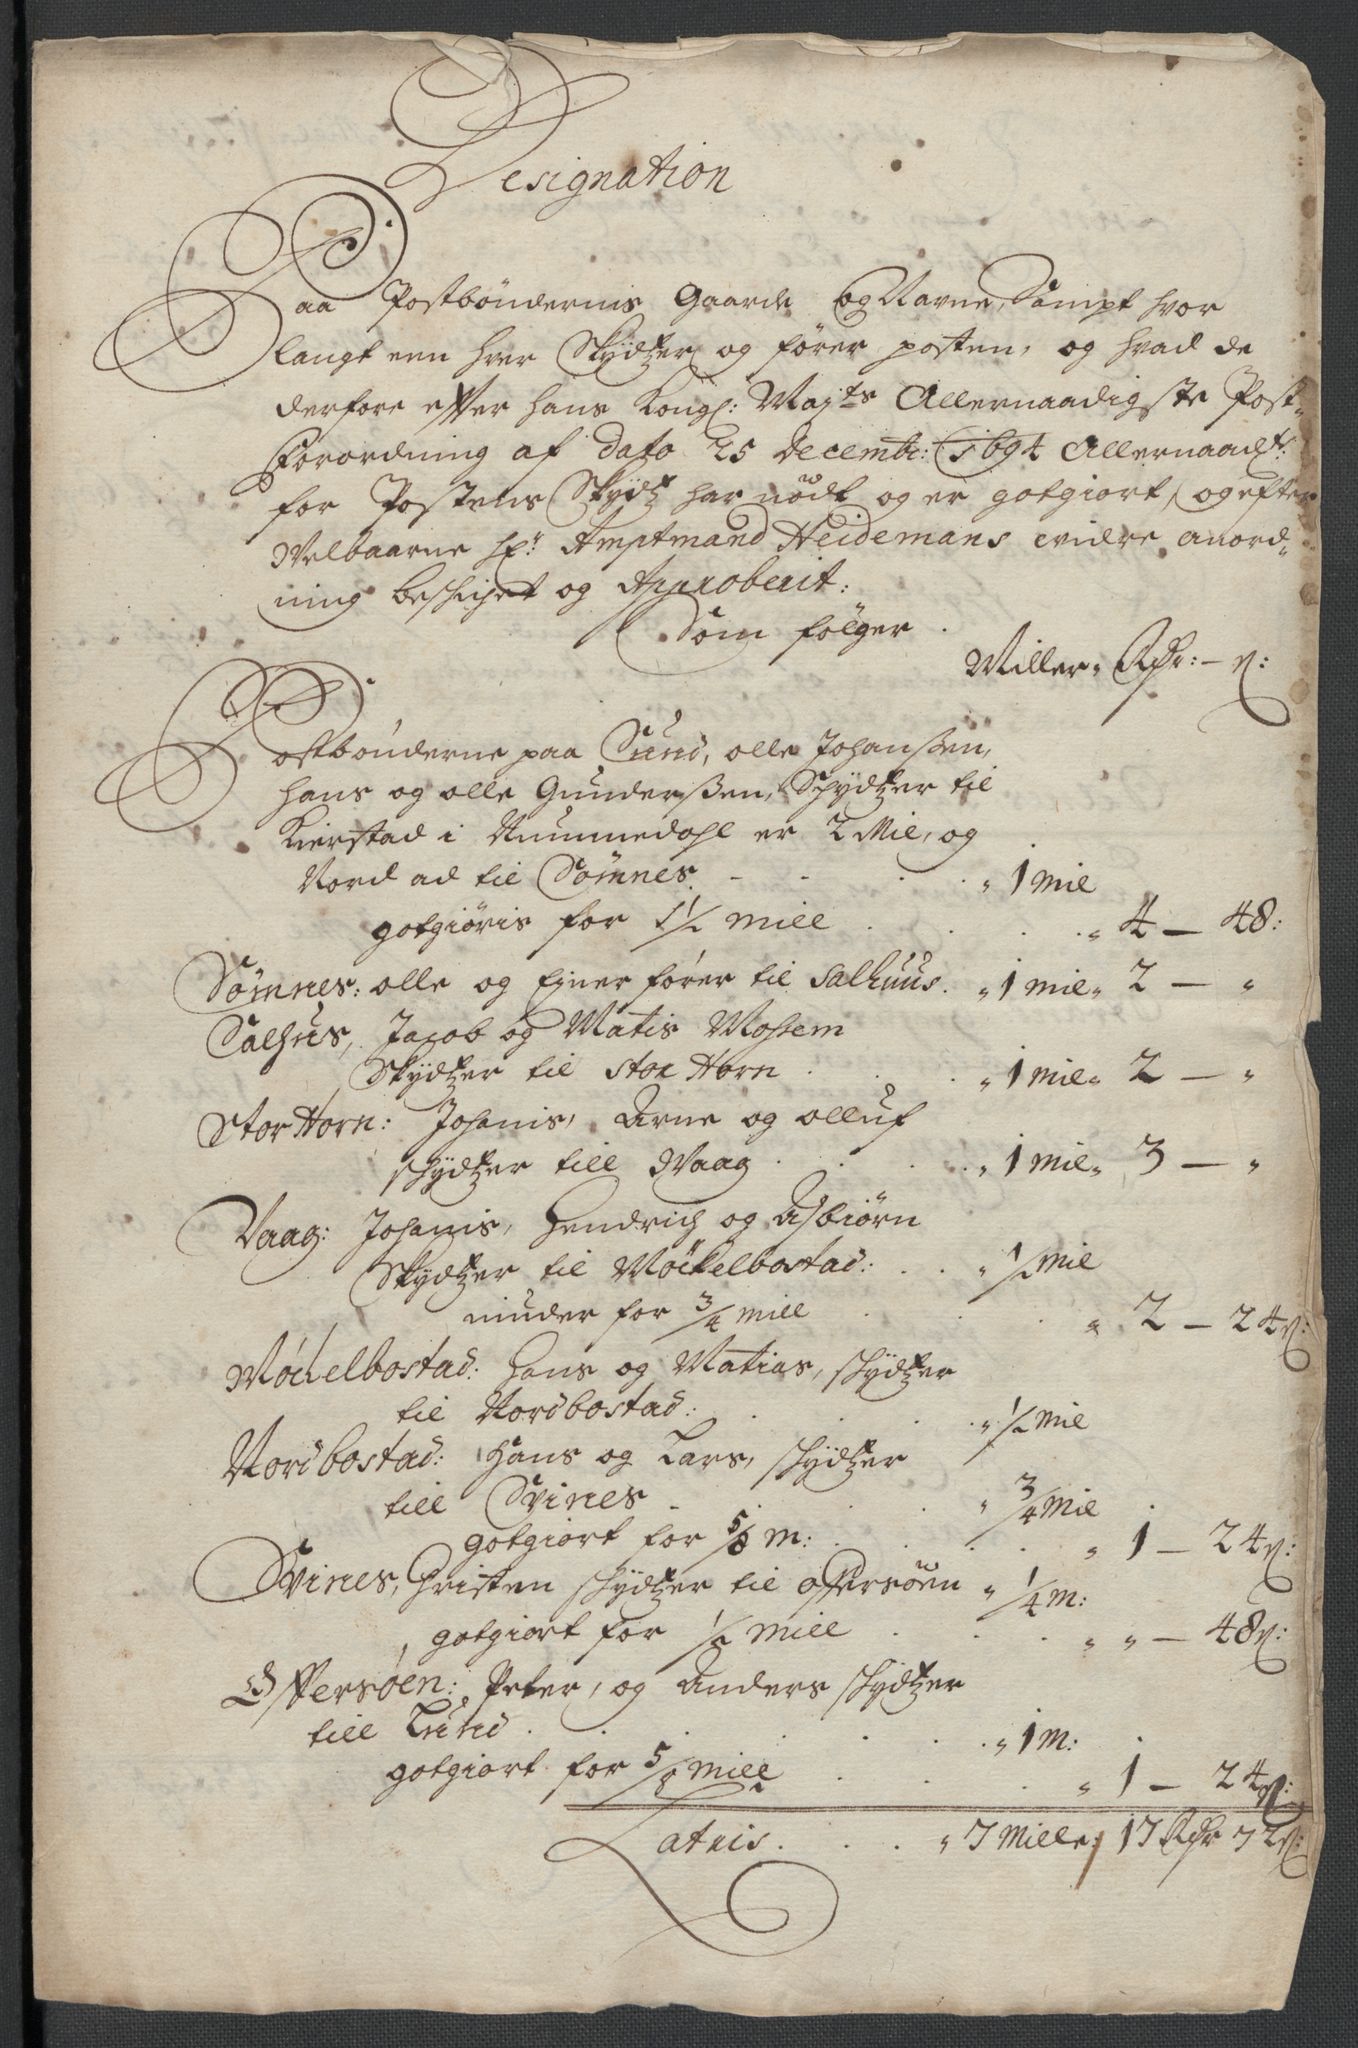 Designation
Paa Postbøndernis Gaarde Og Navne, Sampt hvor
langt een hver Skydtzer og fører posten, og hvad de
derfore effter hans Kongl: Maj:ts Allernaadigste Post-
Forordning af dato 25 Decembr: 1694 Allernaadt:
for Postens Skydtz har nødt og er gotgiort, og efter
Welbaarne Hr: Amptmand Heidemans vidre anord-
ning beskichet og Approberit:
Som følger.
Miller, Rdr: – ß:
Postbønderne paa Sund, olle Johanßen,
Hans og olle Gunderßen, Schydtzer til
Kierstad i Nummedahl er 2 Mil, og
Nord ad til Sømnes. - - . . „ 1 mil
gotgiøris for 1½ mill . . . . „ 4 — 48:
Sømnes: olle og Einer fører til Salhuus. „ 1 mil „ 2 — „
Salhus, Jacob og Matis Mossem
Skydtzer til stor Horn . . . „ 1 mil „ 2 — „
Stor Horn: Johanis, Arne og olluf
schydtzer till Waag . . . . „ 1 mil „ 3 — „
Vaag: Johanis, Hendrich og Asbiørn
Skydtzer til Møckelbostad: . . „ ½ mil
niuder for ¾ mill . . . „ 2 — 24ß:
Møckelbostad: Hans og Matias, schydtzer
til Nordbostad: . . . . „ ½ mil
Nordbostad: Hans og Lars, schydtzer
till Svines - . . . „ ¾ mil
gotgiort for 5/8 m: . . . . „ 1 — 24ß:
Svines, Christen schydtzer til offersøen „ ¼ m:
gotgiort for ½ mill . . . „ „ — 48ß:
Offersøen: Peter, og Anders schydtzer
till Lund . . . . . „ 1 m:
gotgiort for 5/8 mill . . . „ 1 — 24ß:
Lateris . . . „ 7 Mille / 17 Rdr 72ß: